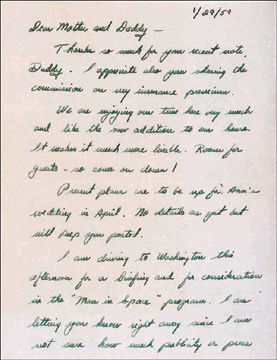 1/29/59
Dear Mother and Daddy -
Thanks so much for your recent note,
Daddy. I appreciate also your sharing the
commission on my insurance premium.
We are enjoying our time here very much
and like the new addition to our house.
It makes it much more livable. Room for
guests - so come on down!
Present plans are to be up for Ann's
wedding in April. No details as yet but
will keep you posted.
I am driving to Washington this
afternoon for a briefing and for consideration
in the "Man in Space" program. I am
letting you know right away since I am
not sure how much publicity or press